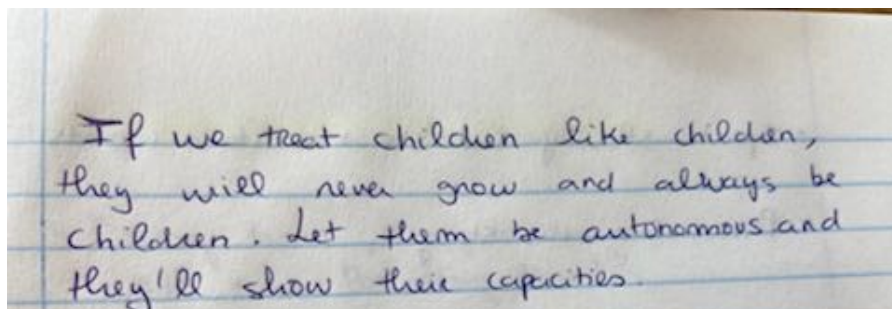 If we treat children like children,
they will never grow and always be
children. Let them be autonomous and
they'll show their capacities.